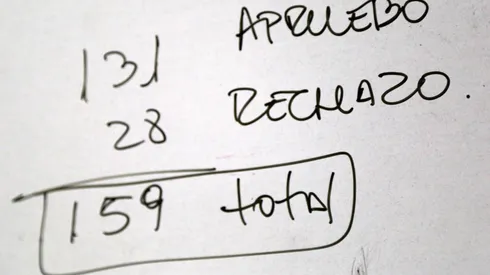 131 APRUEBO
28 RECHAZO.
159 total